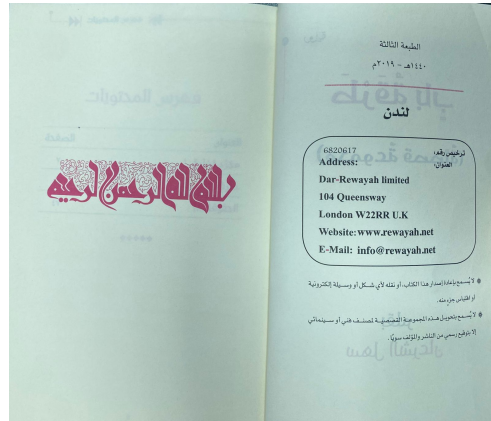 الطبعة الثالثة
١٤٤٠هـ - ٢٠١٩م
لندن
ترخيص رقم: 6820617
العنوان: Address:
Dar-Rewayah limited
104 Queensway
London W22RR U.K
Website: www.rewayah.net
E-Mail: info@rewayah.net
* لا يُسمح بإعادة إصدار هذا الكتاب، أو نقله لأي شكل أو وسيلة إلكترونية
أو اقتباس جزء منه.
* لا يُسمح بتحويل هذه المجموعة القصصية لمصنف فني أو سينمائي
إلا بتوقيع رسمي من الناشر والمؤلف سويًا.
بسم الله الرحمن الرحيم